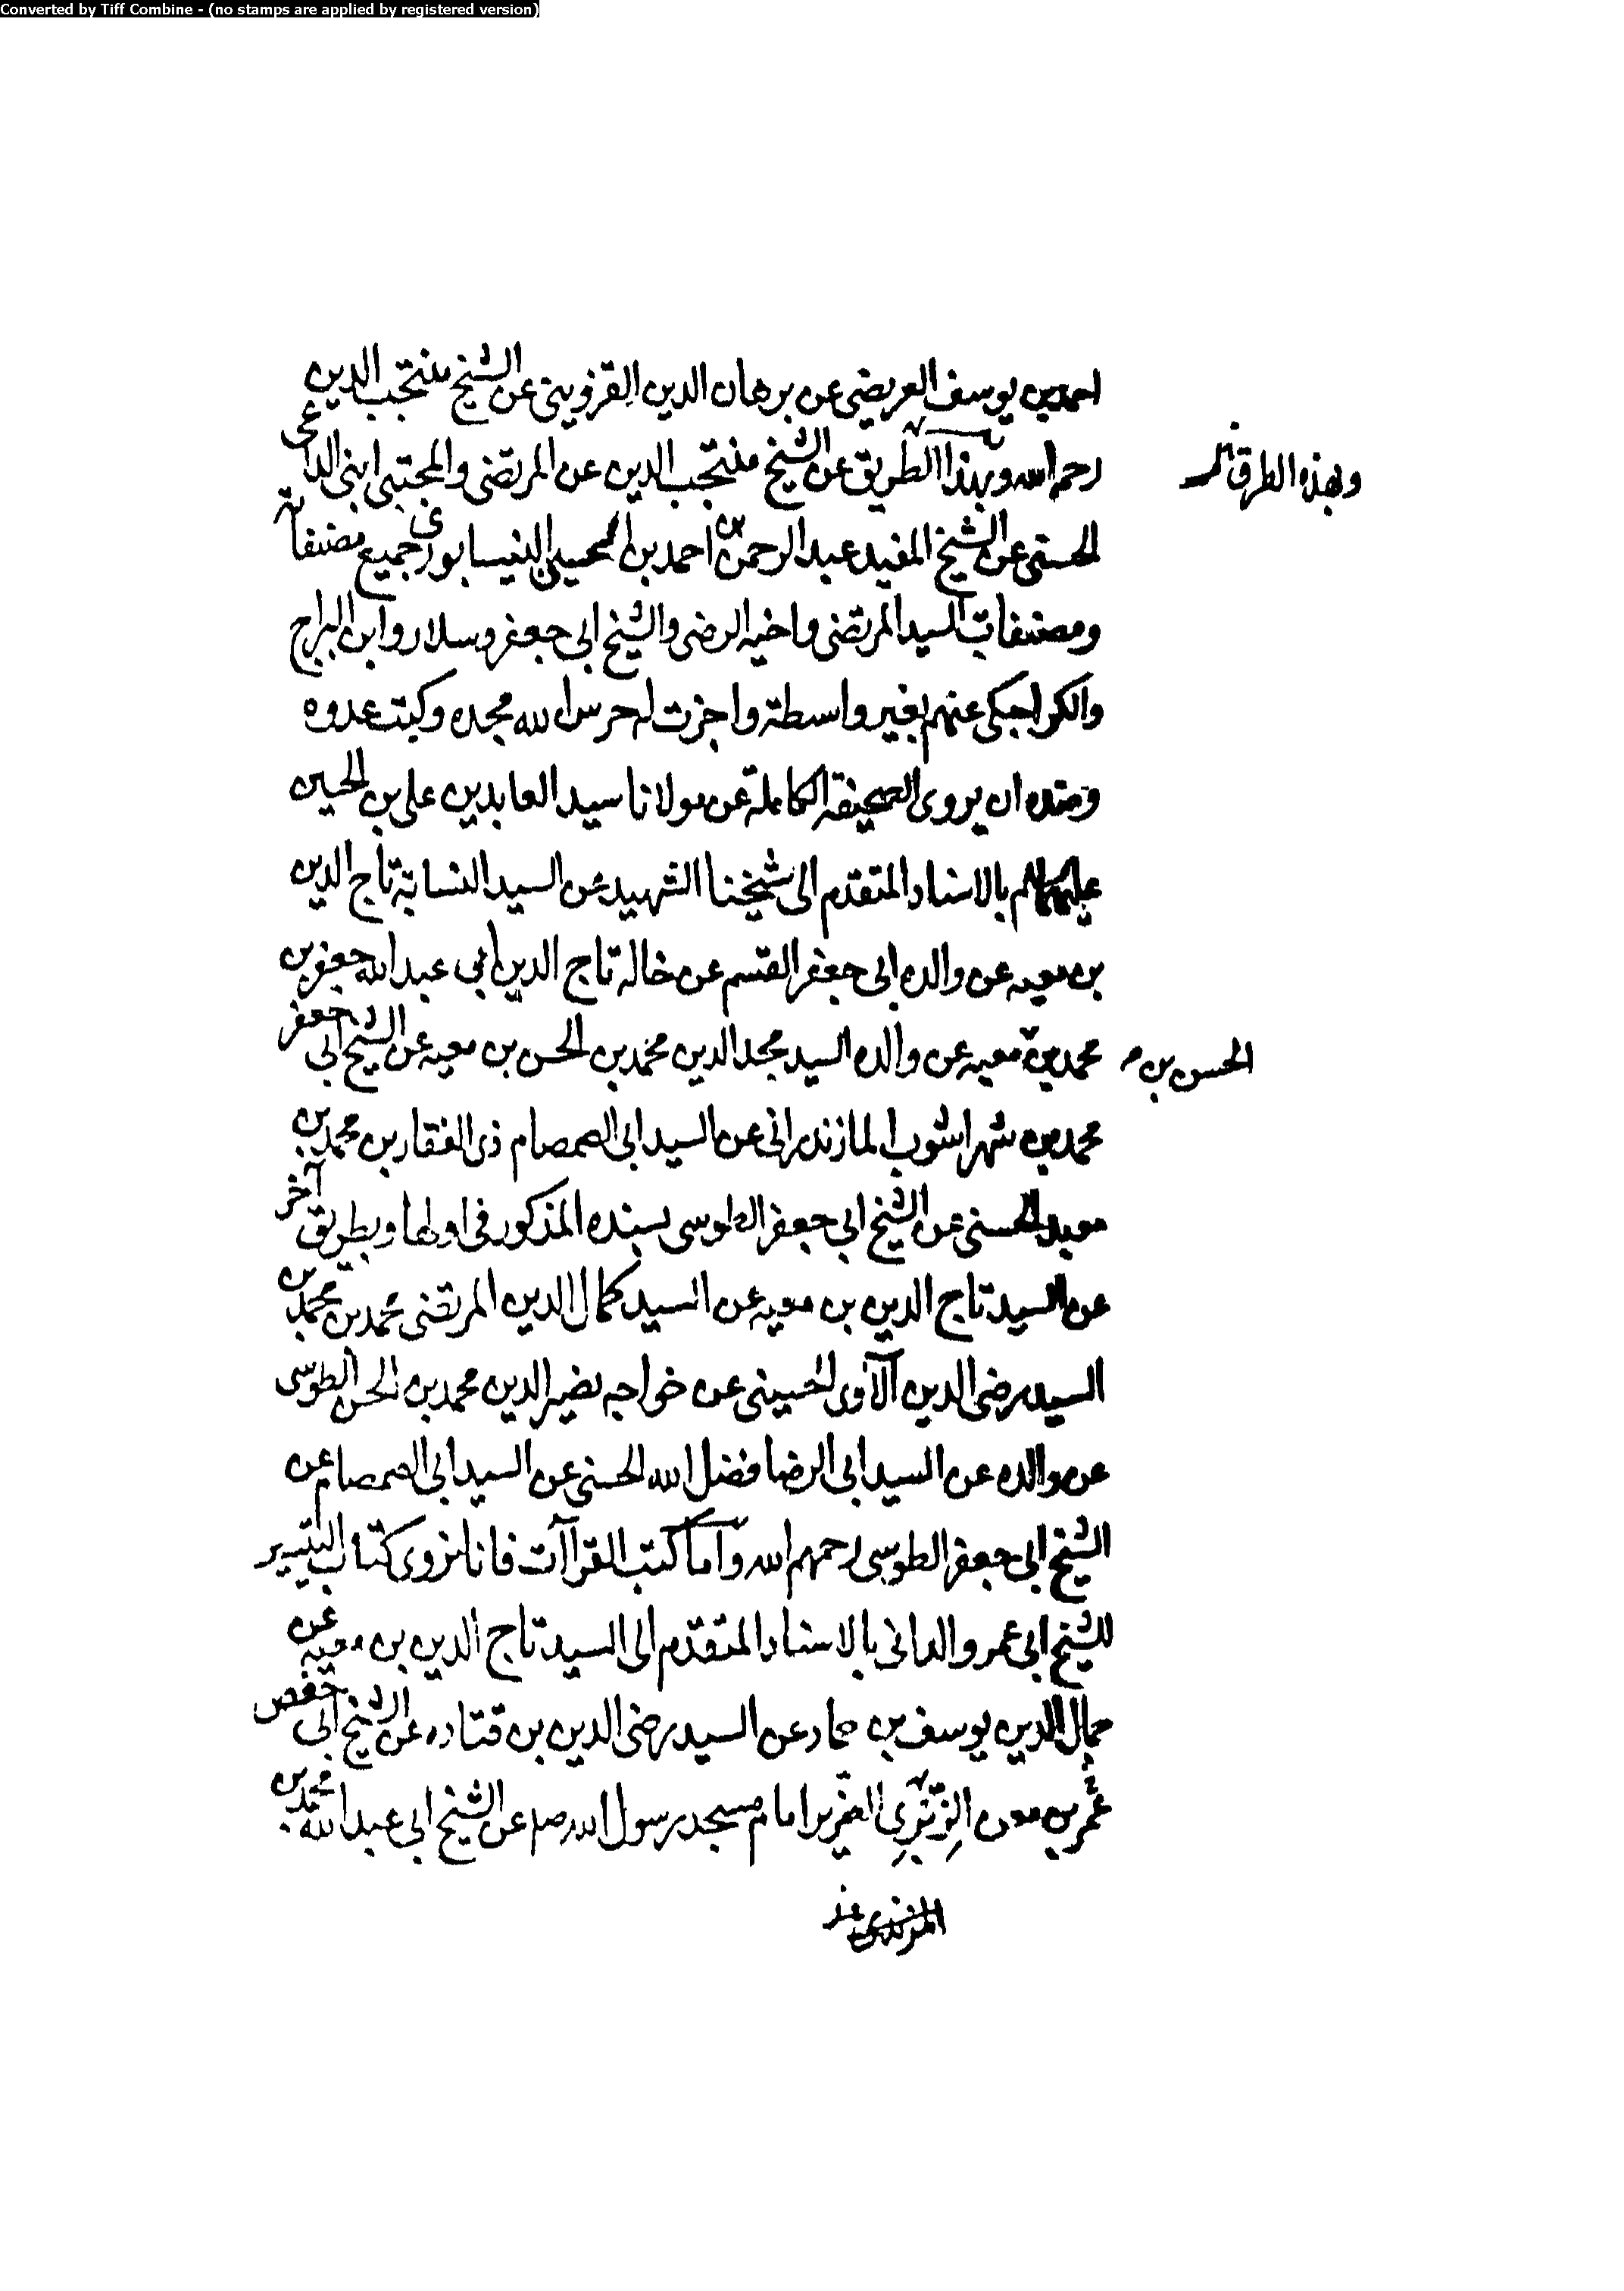 Converted by Tiff Combine - (no stamps are applied by registered version)
احمد بن يوسف العريضى عن برهان الدين القزوينى عن الشيخ منتجب الدين
رحمه الله وبهذا الطريق عن الشيخ منتجب الدين عن المرتضى والمجتبى ابنى الداعى
وبهذه الطرق
الحسنى عن الشيخ المفيد عبد الرحمن بن احمد بن الحسين النيسابورى جميع مصنفاته
ومصنفات السيد المرتضى واخيه الرضى والشيخ ابى جعفر وسلار وابن البراج
والكراجكى عنهم بغير واسطة واجزت له حرس الله مجده وكبت عدوه
وضده ان يروى الصحيفة الكاملة عن مولانا سيد العابدين على بن الحسين
عليهما السلام بالاسناد المتقدم الى شيخنا الشهيد عن السيد النسابة تاج الدين
بن معيه عن والده ابى جعفر القسم عن خاله تاج الدين ابى عبد الله جعفر بن
محمد بن معيه عن والده السيد مجد الدين محمد بن الحسن بن معيه عن الشيخ ابى جعفر
الحسن بن
محمد بن شهراشوب المازندرانى عن السيد ابى الصمصام ذى الفقار بن محمد بن
معبد الحسنى عن الشيخ ابى جعفر الطوسى بسنده المذكور فى اولها وبطريق آخر
عن السيد تاج الدين بن معيه عن السيد كمال الدين المرتضى محمد بن محمد بن
السيد رضى الدين الآوى الحسينى عن خواجه نصير الدين محمد بن الحسن الطوسى
عن والده عن السيد ابى الرضا فضل الله الحسنى عن السيد ابى الصمصام عن
الشيخ ابى جعفر الطوسى رحمهم الله واما كتب القراآت فانا نروى كتاب التيسير
للشيخ ابى عمرو الدانى بالاسناد المتقدم الى السيد تاج الدين بن معيه عن
جمال الدين يوسف بن حماد عن السيد رضى الدين بن قتاده عن الشيخ ابى حفص
عمر بن معن الزبرى الضرير امام مسجد رسول الله صلم عن الشيخ ابى عبد الله محمد بن